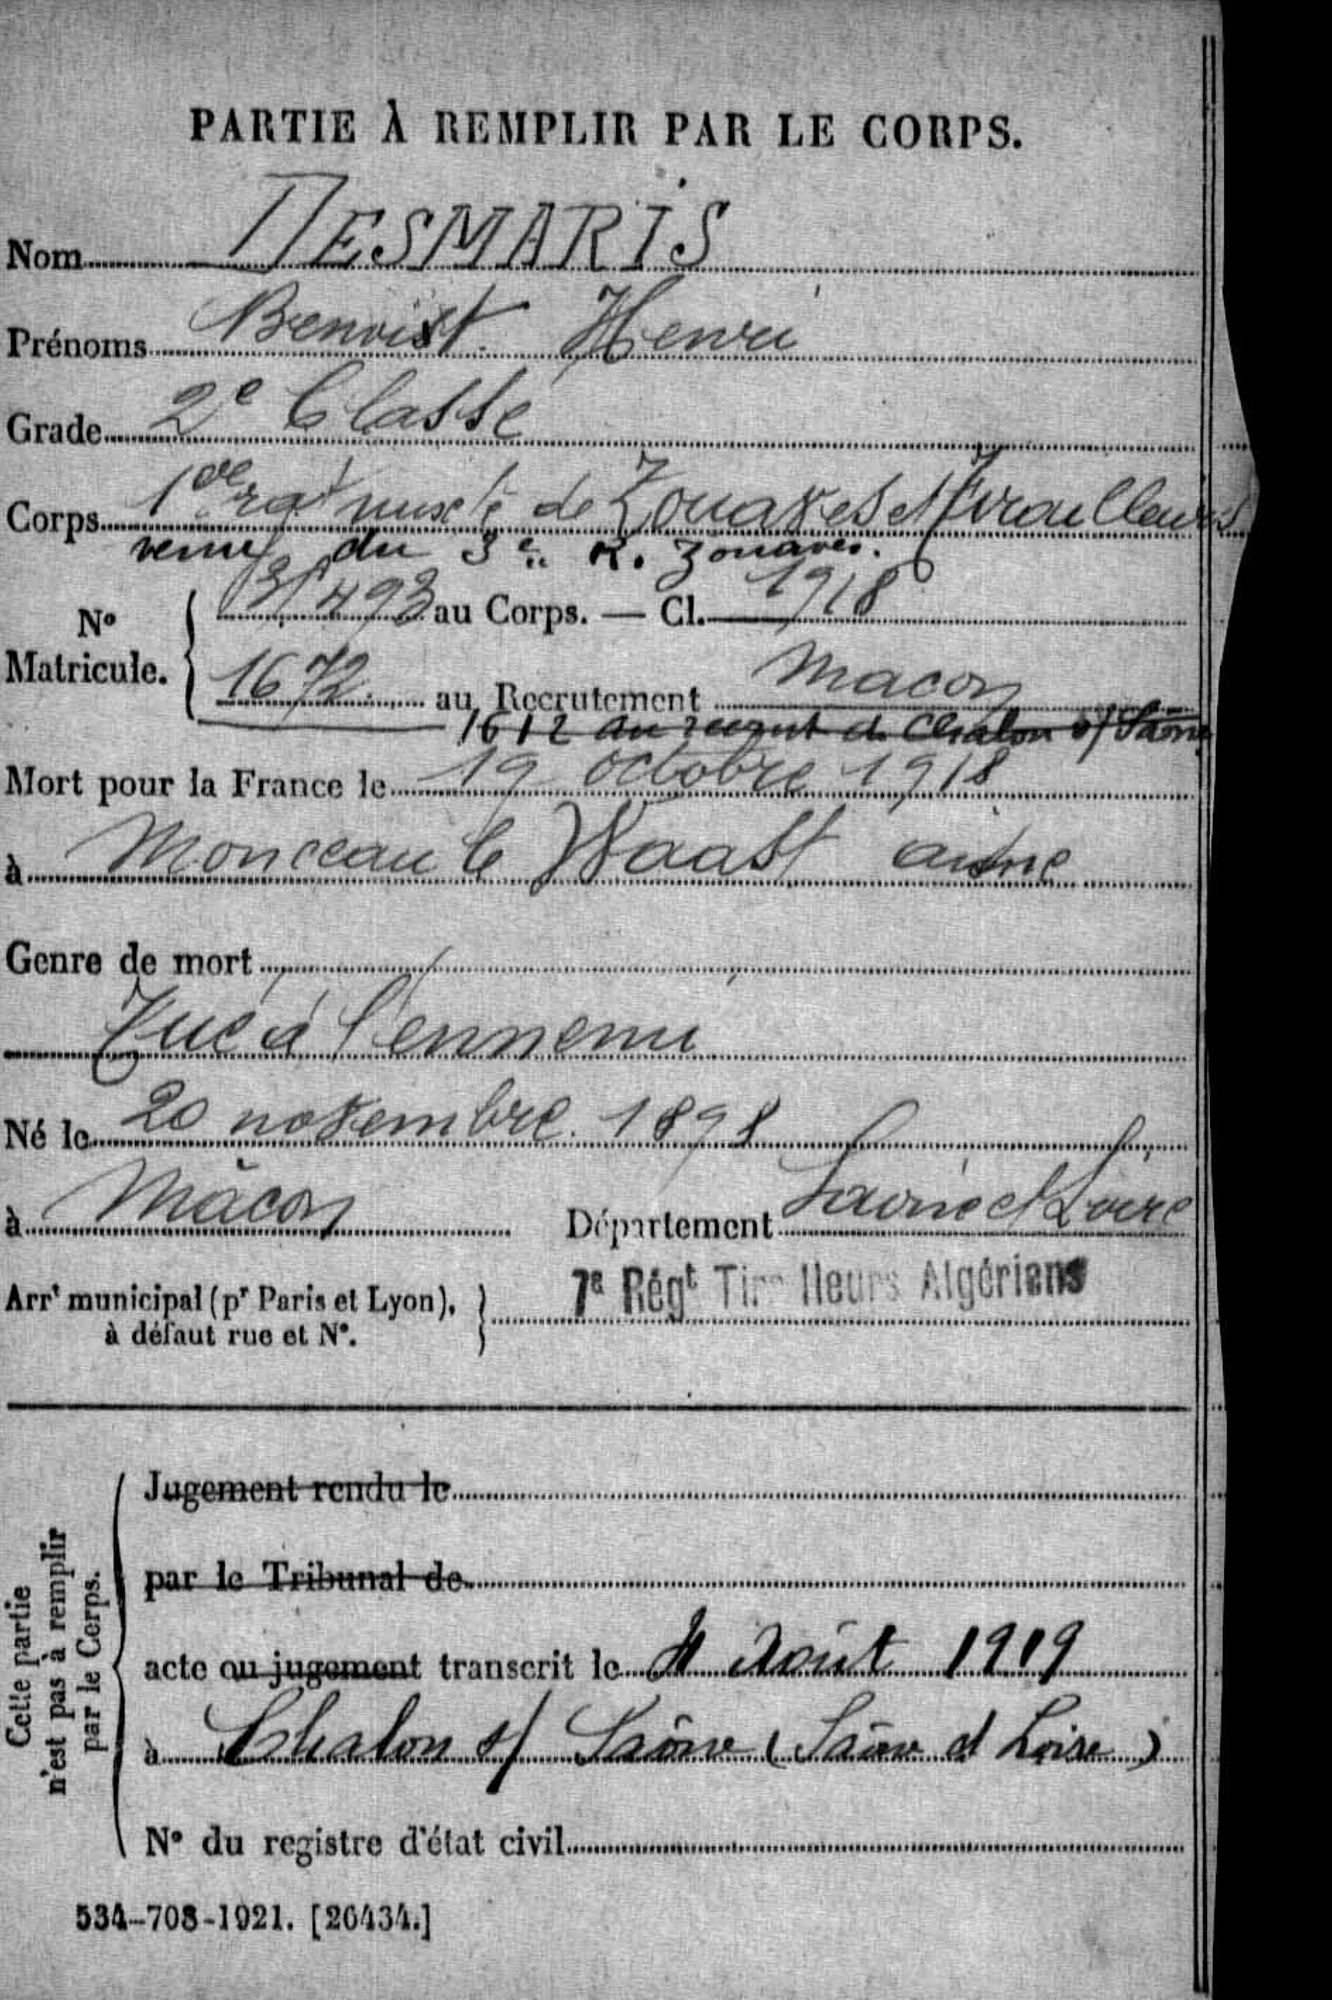 PARTIE À REMPLIR PAR LE CORPS.
Nom DESMARIS
Prénoms Benoist Henri
Grade 2e Classe
Corps 1er rgt mixte de Zouaves et Tirailleurs
venu du 3e R. Zouaves.
No Matricule. 31493 au Corps. — Cl. 1918
1672 au Recrutement Macon
1612 au recrut de Chalon s/ Saône
Mort pour la France le 19 octobre 1918
à Monceau le Waast aisne
Genre de mort
Tué à l'ennemi
Né le 20 novembre 1898
à Mâcon Département Saône et Loire
Arrt municipal (pr Paris et Lyon), à défaut rue et No.
7e Régt Tirailleurs Algériens
Cette partie n'est pas à remplir par le Corps.
Jugement rendu le
par le Tribunal de
acte ou jugement transcrit le Août 1919
à Chalon s/ Saône (Saône et Loire)
No du registre d'état civil
534-708-1921. [26434.]